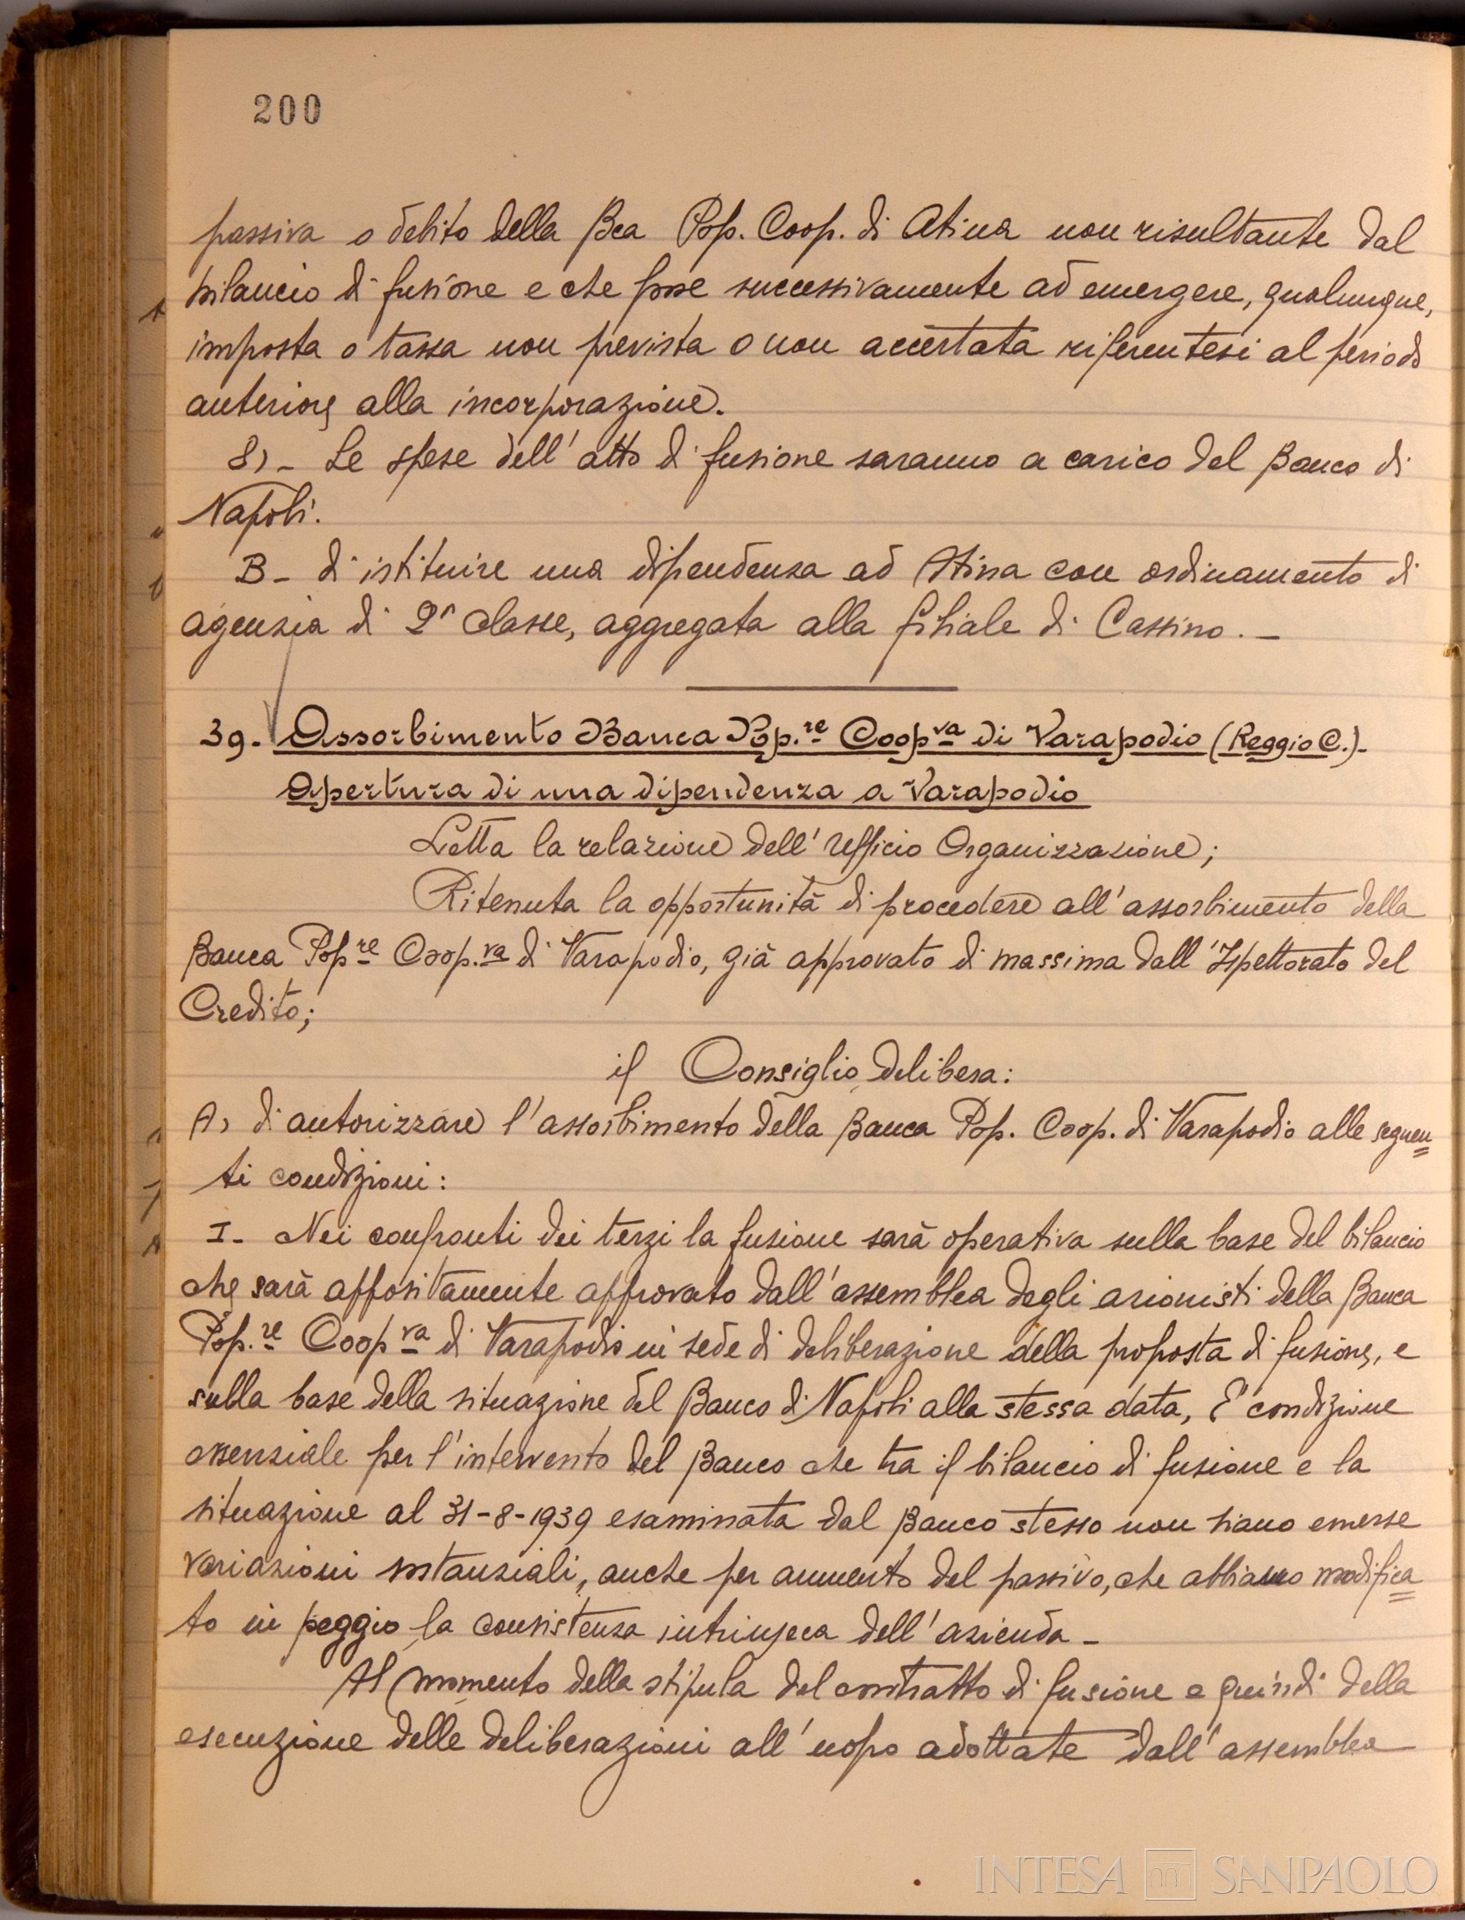 200
passiva o debito della Bca Pop. Coop. di Atina non risultante dal
bilancio di fusione e che fosse successivamente ad emergere, qualunque,
imposta o tassa non prevista o non accertata riferentesi al periodo
anteriore alla incorporazione.
8)- Le spese dell'atto di fusione saranno a carico del Banco di
Napoli.
B- di istituire una dipendenza ad Atina con ordinamento di
agenzia di 2ª classe, aggregata alla filiale di Cassino.-
39- Assorbimento Banca Pop.re Coopva di Varapodio (Reggio C.)-
Apertura di una dipendenza a Varapodio
Letta la relazione dell'Ufficio Organizzazione;
Ritenuta la opportunità di procedere all'assorbimento della
Banca Popre Coop.va di Varapodio, già approvato di massima dall'Ispettorato del
Credito;
il Consiglio delibera:
A) di autorizzare l'assorbimento della Banca Pop. Coop. di Varapodio alle seguen=
ti condizioni:
I- Nei confronti dei terzi la fusione sarà operativa sulla base del bilancio
che sarà appositamente approvato dall'assemblea degli azionisti della Banca
Pop.re Coopva di Varapodio in sede di deliberazione della proposta di fusione, e
sulla base della situazione del Banco di Napoli alla stessa data, E' condizione
essenziale per l'intervento del Banco che tra il bilancio di fusione e la
situazione al 31-8-1939 esaminata dal Banco stesso non siano emerse
variazioni sostanziali, anche per aumento del passivo, che abbiano modifica=
to in peggio la consistenza intrinseca dell'azienda-
Al momento della stipula del contratto di fusione e quindi della
esecuzione delle deliberazioni all'uopo adottate dall'assemblea
INTESA SANPAOLO